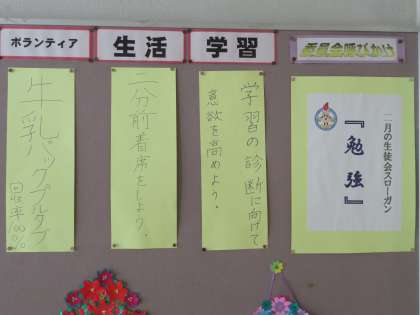 ボランティア
生活
学習
委員会呼びかけ
牛乳パックプルタブ
回収率100%
二分前着席をしよう。
学習の診断に向けて
意欲を高めよう。
二月の生徒会スローガン
『勉強』